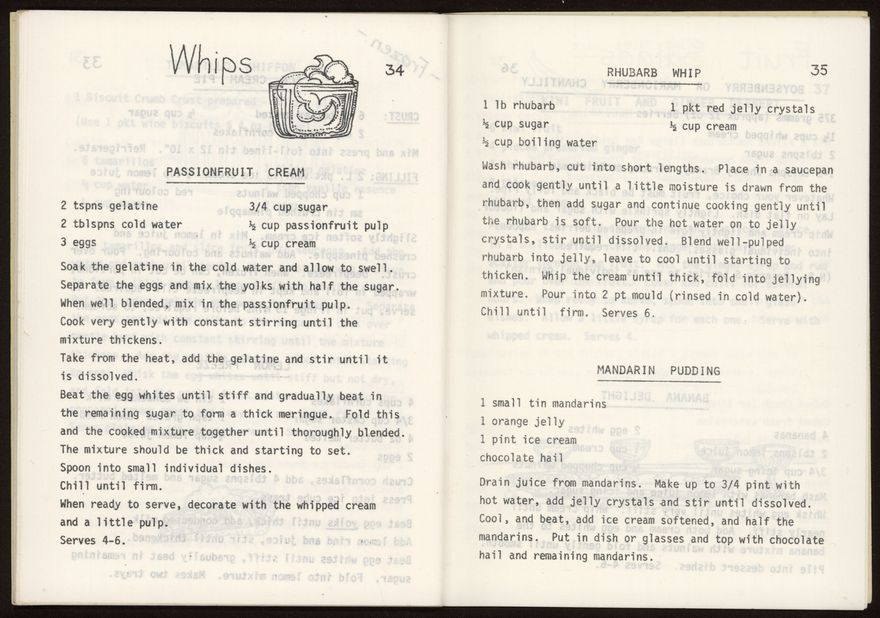 Whips
34
PASSIONFRUIT CREAM
2 tspns gelatine 3/4 cup sugar
2 tblspns cold water ½ cup passionfruit pulp
3 eggs ½ cup cream
Soak the gelatine in the cold water and allow to swell.
Separate the eggs and mix the yolks with half the sugar.
When well blended, mix in the passionfruit pulp.
Cook very gently with constant stirring until the
mixture thickens.
Take from the heat, add the gelatine and stir until it
is dissolved.
Beat the egg whites until stiff and gradually beat in
the remaining sugar to form a thick meringue. Fold this
and the cooked mixture together until thoroughly blended.
The mixture should be thick and starting to set.
Spoon into small individual dishes.
Chill until firm.
When ready to serve, decorate with the whipped cream
and a little pulp.
Serves 4-6.
RHUBARB WHIP 35
1 lb rhubarb 1 pkt red jelly crystals
½ cup sugar ½ cup cream
½ cup boiling water
Wash rhubarb, cut into short lengths. Place in a saucepan
and cook gently until a little moisture is drawn from the
rhubarb, then add sugar and continue cooking gently until
the rhubarb is soft. Pour the hot water on to jelly
crystals, stir until dissolved. Blend well-pulped
rhubarb into jelly, leave to cool until starting to
thicken. Whip the cream until thick, fold into jellying
mixture. Pour into 2 pt mould (rinsed in cold water).
Chill until firm. Serves 6.
MANDARIN PUDDING
1 small tin mandarins
1 orange jelly
1 pint ice cream
chocolate hail
Drain juice from mandarins. Make up to 3/4 pint with
hot water, add jelly crystals and stir until dissolved.
Cool, and beat, add ice cream softened, and half the
mandarins. Put in dish or glasses and top with chocolate
hail and remaining mandarins.